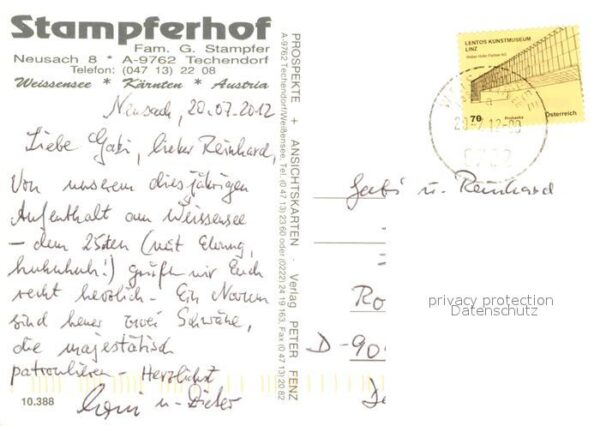 Stampferhof
Fam. G. Stampfer
Neusach 8 * A-9762 Techendorf
Telefon: (047 13) 22 08
Weissensee * Kärnten * Austria
Neusach, 20.07.2012
Liebe Gabi, lieber Reinhard,
Von unserem diesjährigen
Aufenthalt am Weissensee
– dem 25sten (mit Ehrung,
huhuhuh!) grüßen wir Euch
recht herzlich. Ein Novum
sind heuer zwei Schwäne,
die majestätisch
patroulieren – Herzlichst
u. Dieter
10.388
PROSPEKTE + ANSICHTSKARTEN - Verlag PETER FENZ
A-9762 Techendorf/Weißensee, Tel. (0 47 13) 23 60 oder (0222) 24 19 163, Fax (0 47 13) 20 82
LENTOS KUNSTMUSEUM
LINZ
70
Österreich
Gabi u. Reinhard
Ro
D-90
privacy protection
Datenschutz